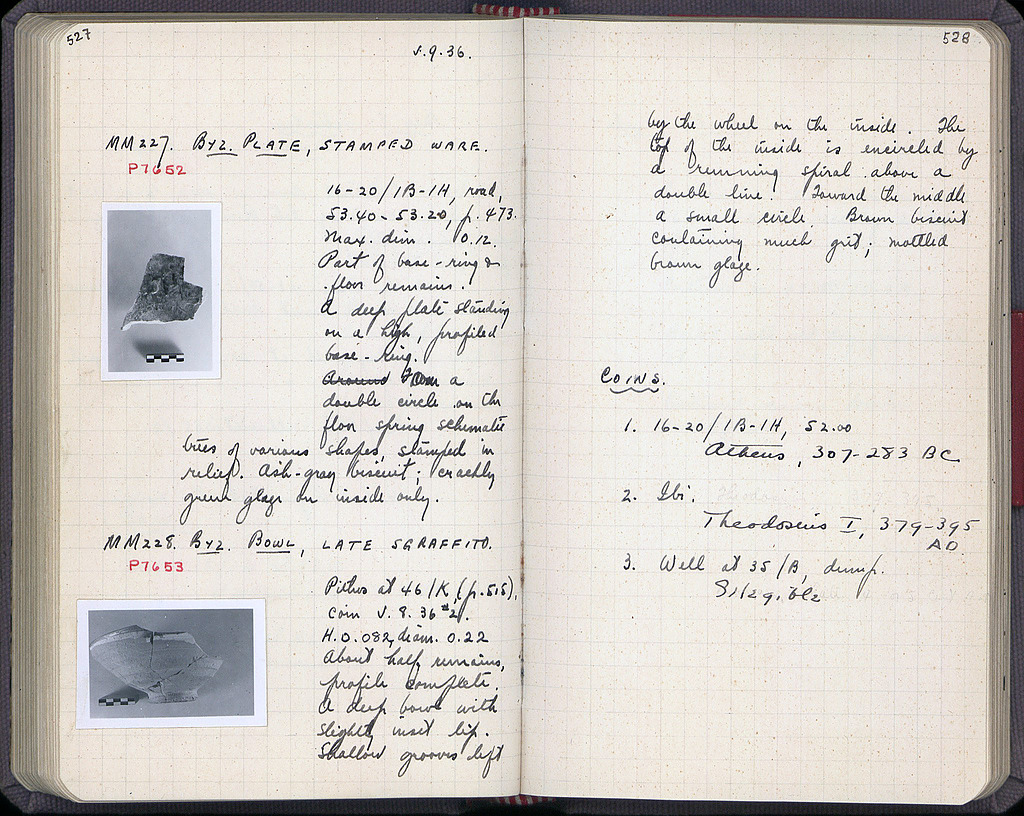 527
V.9.36.
MM227. BYZ. PLATE, STAMPED WARE.
P7652
16-20/1B-1H, road,
53.40-53.20, p. 473.
Max. dim. 0.12.
Part of base-ring &
floor remains.
A deep plate standing
on a high, profiled
base-ring.
Around From a
double circle on the
floor spring schematic
trees of various shapes, stamped in
relief. Ash-gray biscuit; crackly
green glaze on inside only.
MM228. BYZ. BOWL, LATE SGRAFFITO.
P7653
Pithos at 46/K, (p. 515),
coin V. 8. 36 #2.
H. 0.082, diam. 0.22
About half remains,
profile complete.
A deep bowl with
slightly inset lip.
Shallow grooves left
528
by the wheel on the inside. The
top of the inside is encircled by
a running spiral above a
double line. Toward the middle
a small circle. Brown biscuit
containing much grit; mottled
brown glaze.
COINS.
1. 16-20/1B-1H, 52.00
Athens, 307-283 BC
2. Ibi.
Theodosius I, 379-395
AD
3. Well at 35/B, dump.